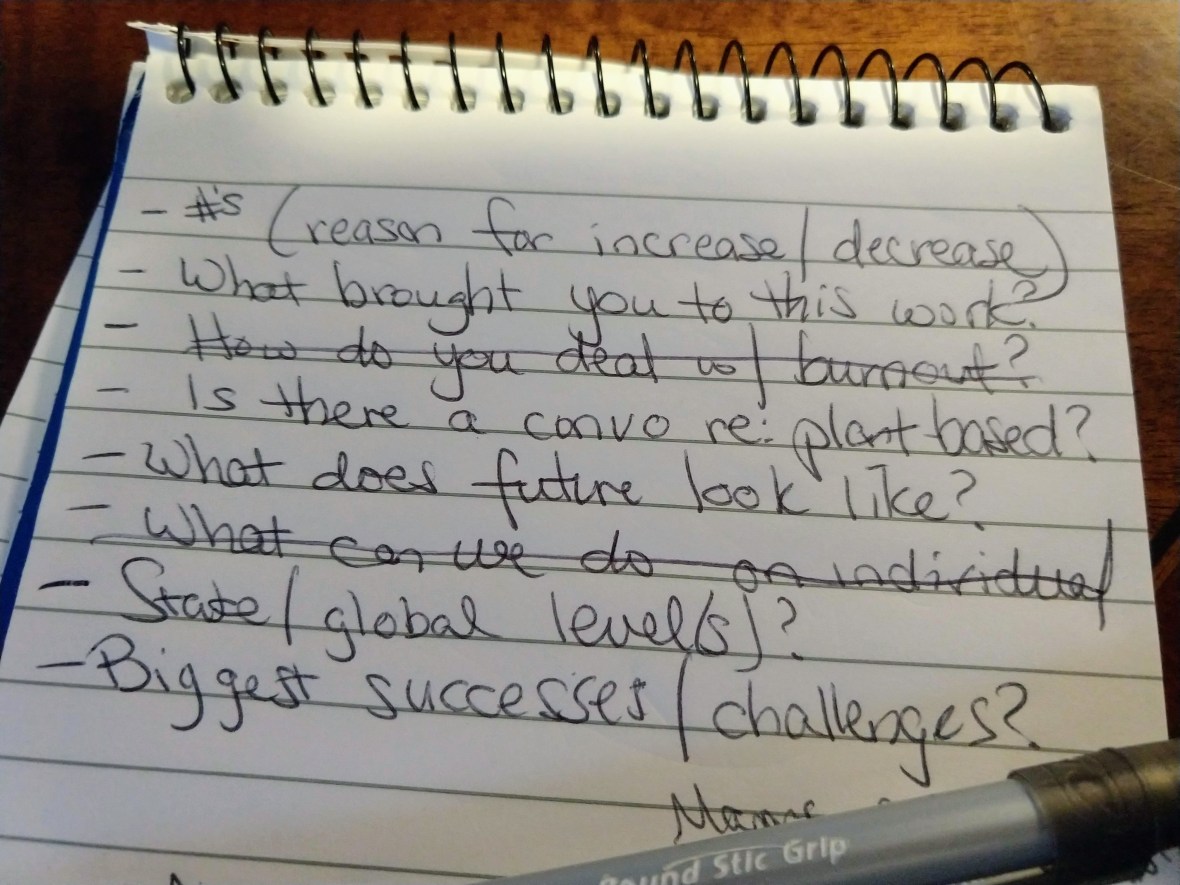 - #'s (reason for increase/decrease)
- What brought you to this work?
- How do you deal w/ burnout?
- Is there a convo re: plant based?
- What does future look like?
- What can we do on individual/
- State/global level(s)?
- Biggest successes/challenges?
Stic Grip